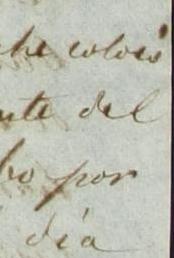 che colocó
nte del
bo por
día